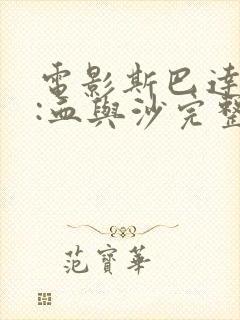 電影斯巴達
:血與沙完整
范寶華